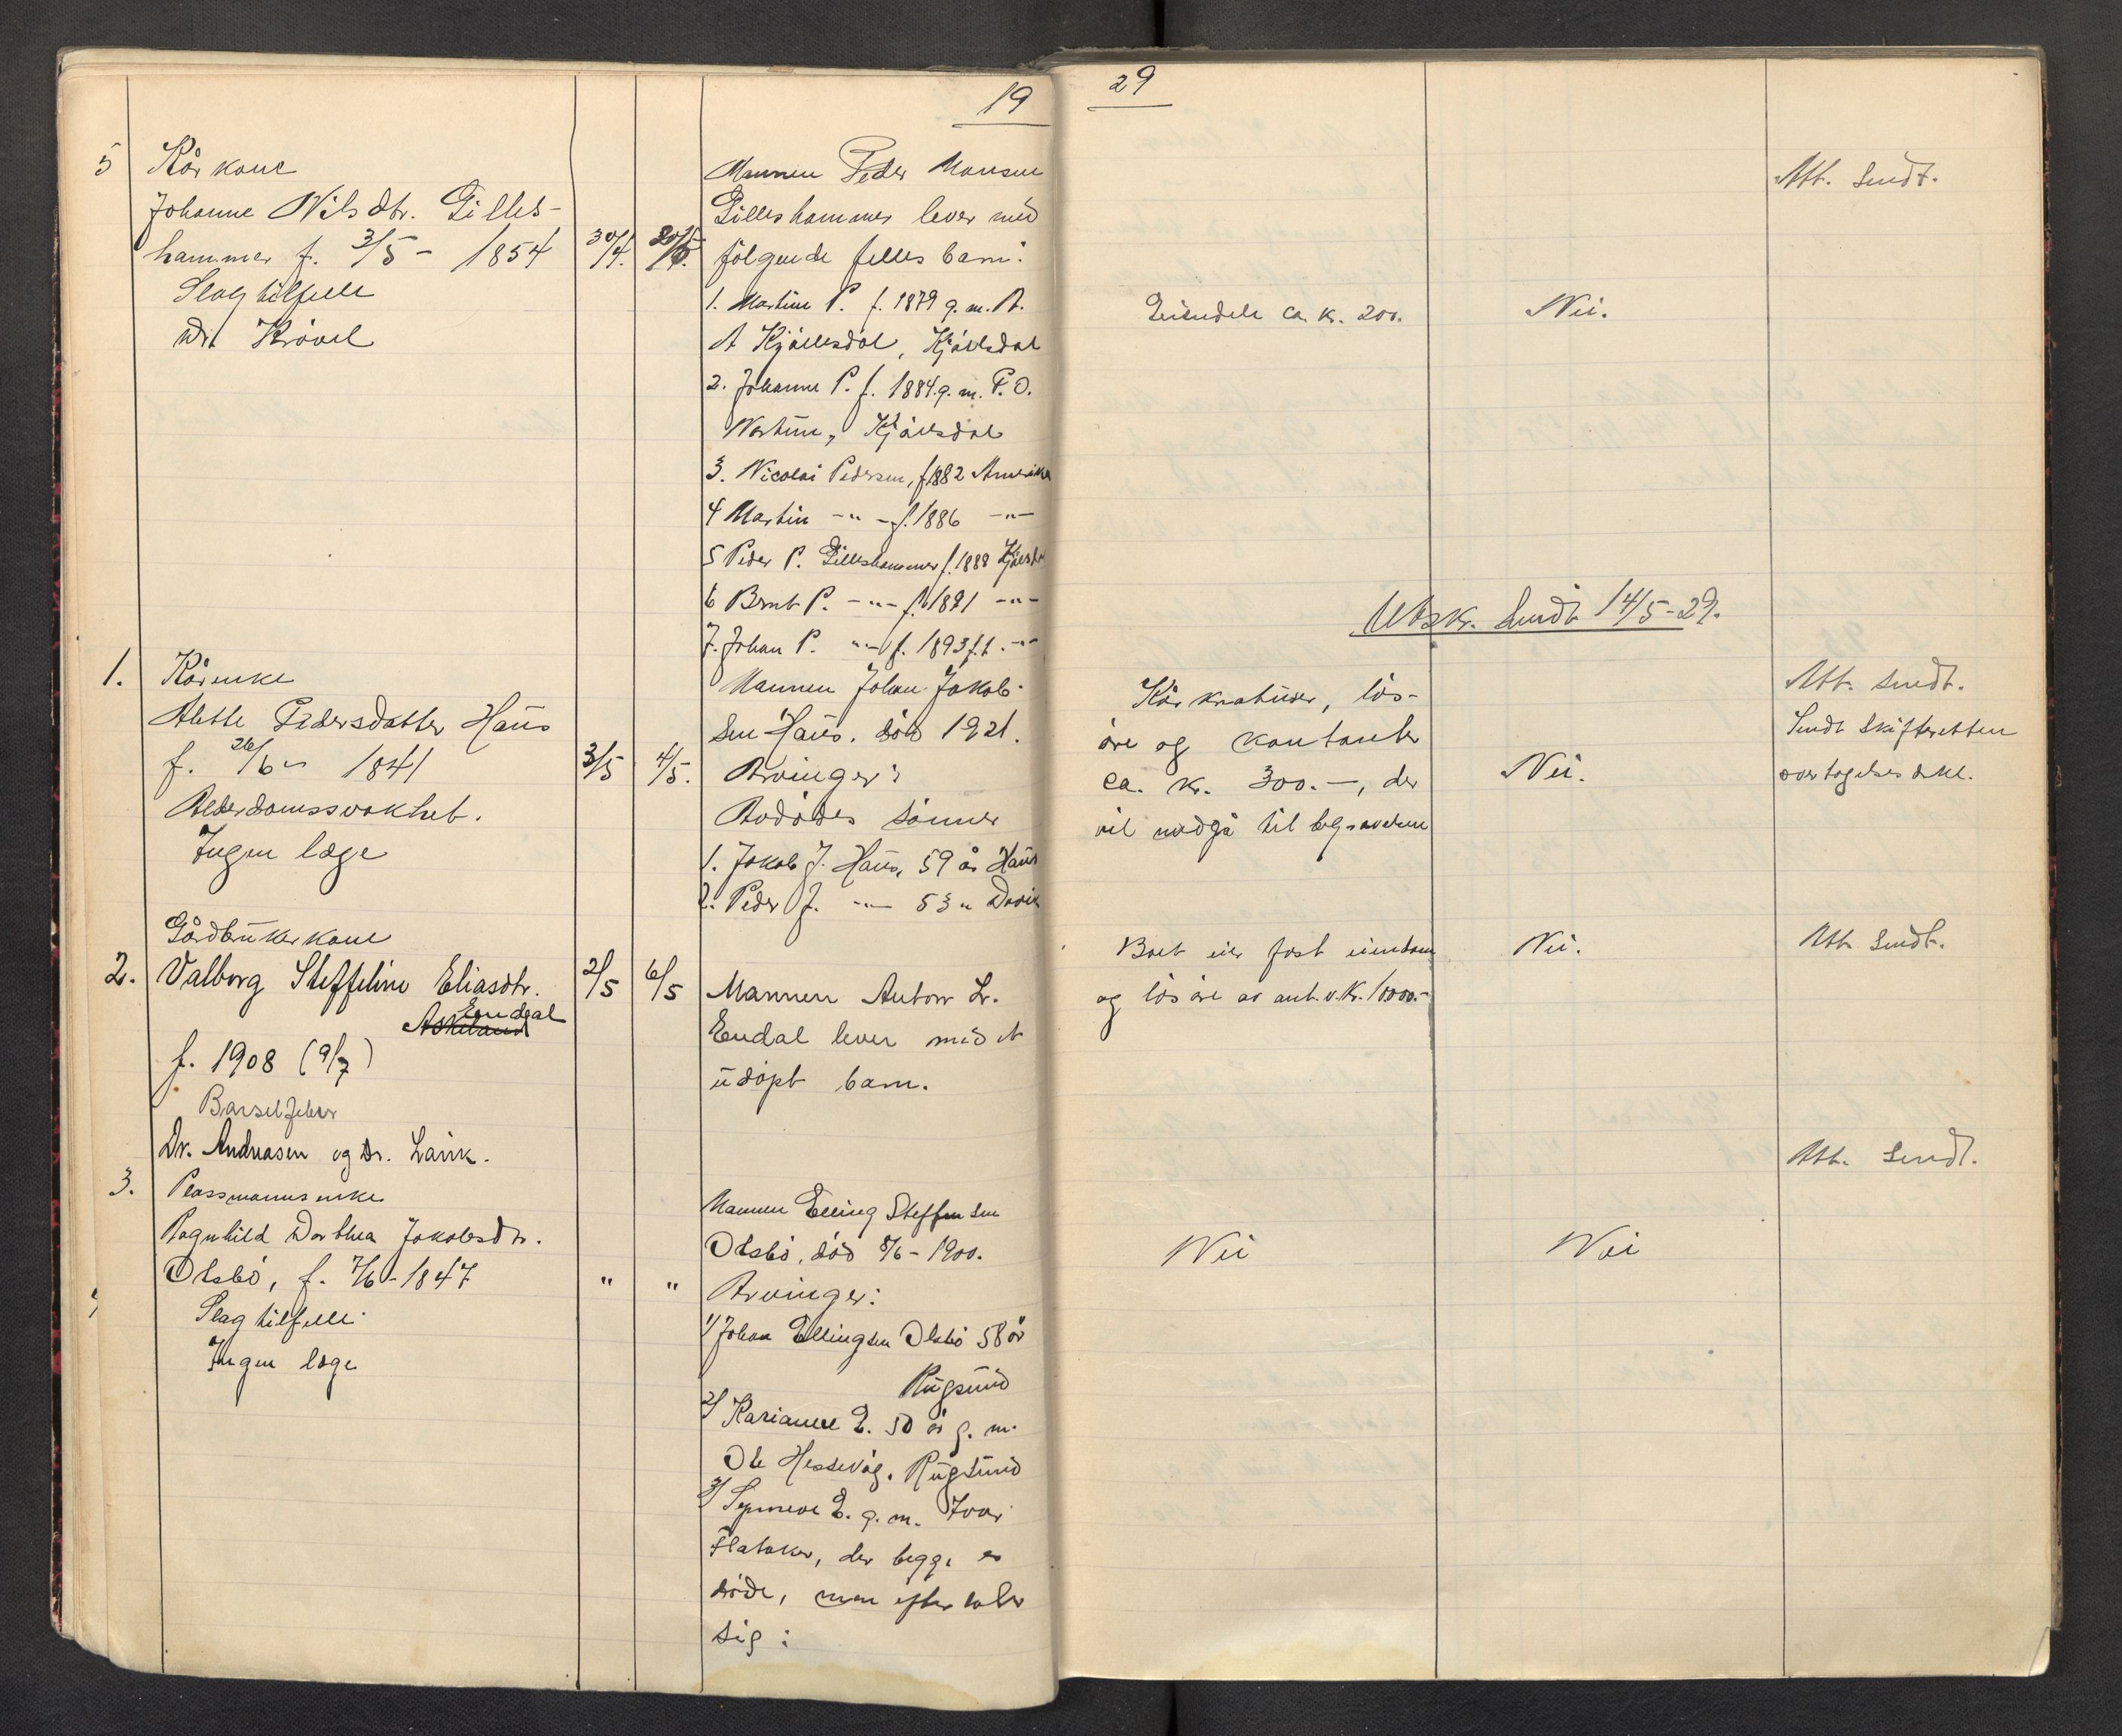 19
5 Kårkone
Johanne Nilsdtr. Gilles-
hammer f. 3/5 - 1854
30/4. 30/4.
Slagtilfelle
Dr. Krövel
Mannen Peder Monsen
Gilleshammer lever med
følgende felles barn:
1. Martine P. f. 1879 g. m. A.
A Kjållsdal, Kjållsdal
2. Johanne P. f. 1884. g. m. P. O.
Kjållsdal
3. Nicolai Pedersen, f. 1882 Amerika
4 Martin -"- f. 1886 -"-
5 Peder P. Gilleshammer f. 1888
6 Bernt P. -"- f. 1891 -"-
7. Johan P. -"- f. 1893 -"-
1. Kårenke
Alette Pedersdatter Haus
f. 26/6 - 1841
3/5 4/5.
Alderdomssvakhet.
Ingen læge
Mannen Johan Jakob-
sen Haus. död 1921.
Arvinger:
Avdödes sönner
1. Jakob J. Haus, 59 år Haus
2. Peder J. -"- 53 " Davik
Gårdbrukerkone
2. Valborg Steffeline Eliasdtr.
Endal
Askeland
2/5 6/5
f. 1908 (9/7)
Barselfeber
Dr. Andreasen og Dr. Lavik.
Mannen Anton L.
Endal lever med et
udöpt barn.
3. Plassmannsenke
Ragnhild Dorthea Jakobsdtr.
Olsbö, f. 7/6 - 1847
" "
Slagtilfelle
Ingen læge
Mannen Elling Steffensen
Olsbö, död 8/6 - 1900.
Arvinger:
1/ Johan Ellingsen Olsbö 58 år
Rugsund
2/ Karianne E. 50 år g. m.
Ole Hessevåg. Rugsund
3/ Synneve E. g. m. Ivar
Flatøker, der begge er
döde, men efterlater
sig:
29
Att. sendt.
Eiendele ca. kr. 200. Nei.
Utskr. sendt 14/5-29.
Att. sendt.
Sendt skifteretten
overtagelses dekl.
Kårkreaturer, lös-
öre og kontanter
ca. kr. 300.-, der
vil medgå til begravelsen
Nei.
Boet eier fast eiendom
og lösöre av ant. v. Kr. 10000.-
Nei.
Att. sendt.
Att. sendt.
Nei Nei